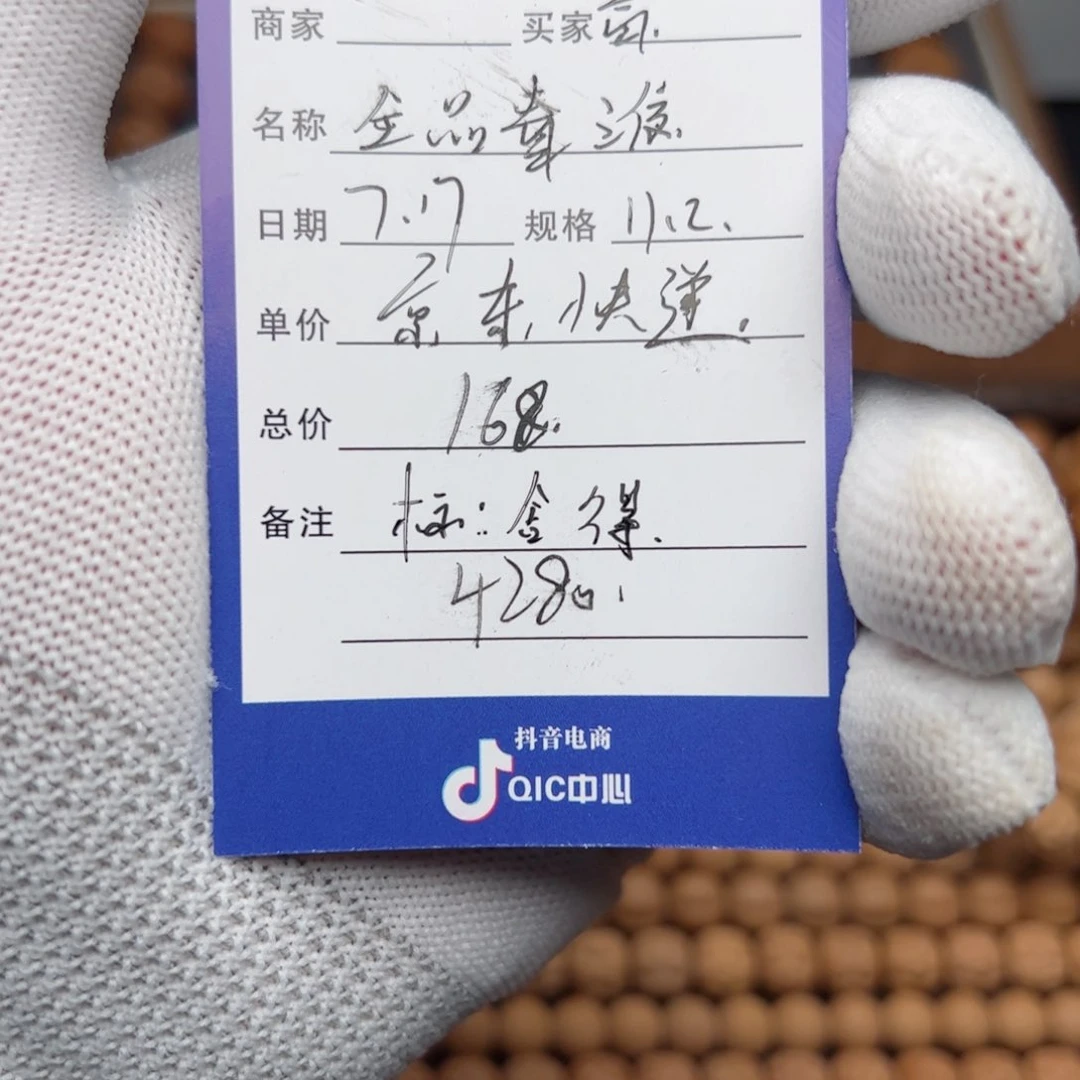 商家 买家
名称 全品
日期 7.17 规格 11.2.
单价 京东快递.
总价 168.
备注 标:舍得.
428
抖音电商
QIC中心